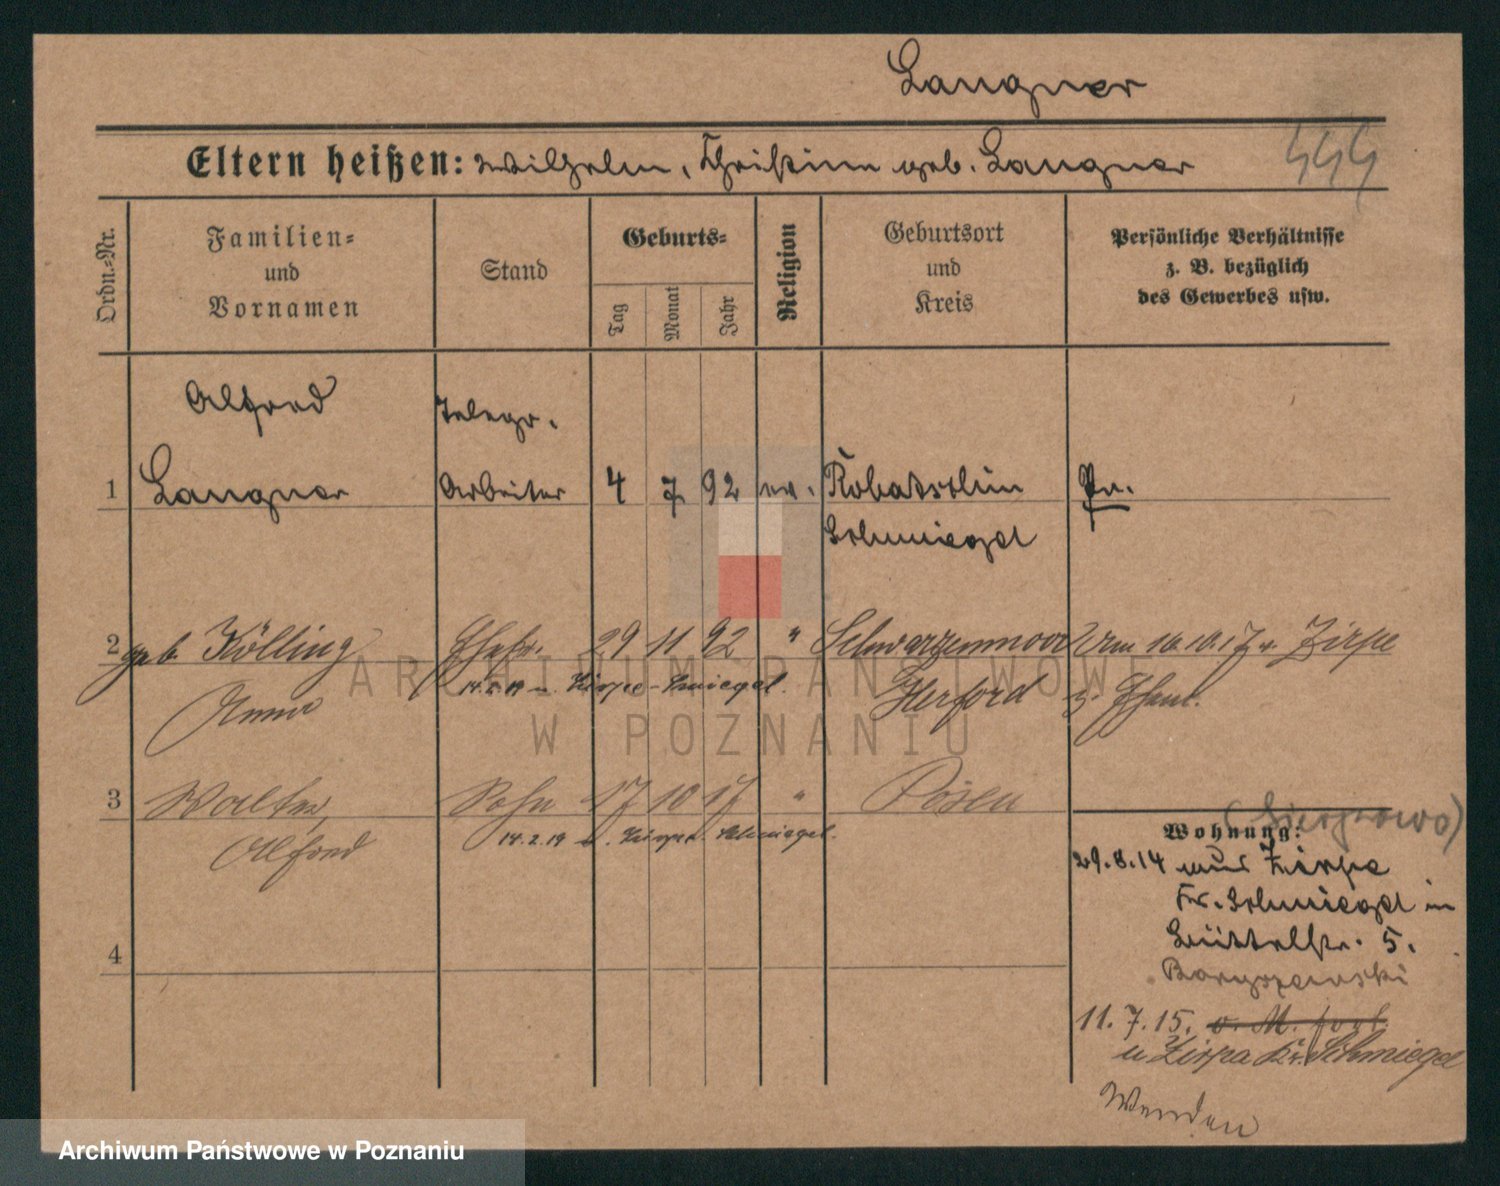 Langner
Eltern heißen: Wilhelm, Christine geb. Langner
444
Ordn.=Nr.
Familien=
und
Vornamen
Stand
Geburts=
Tag
Monat
Jahr
Religion
Geburtsort
und
Kreis
Persönliche Verhältnisse
z. B. bezüglich
des Gewerbes usw.
Alfred Telegr.
1 Langner Arbeiter 4 7 92 ev. Robatschin Pr.
Schmiegel
2 geb. Kölling Ehefr. 29 11 92 " Schwarzenmoor Am 16.10.17 v. Zirpe
Anna 14.2.19 n. Zirpe - Smiegel. Herford z. Ehem.
3 Walter, Sohn 17 10 17 " Posen
Alfred 14.2.19 n. Zirpe. Schmiegel.
4
Wohnung: (Sierpowo)
29.8.14 aus Zirpe
Kr. Schmiegel in
Büttelstr. 5.
Boryszewski
11.7.15. v. M. fort
n Zirpe Kr. Schmiegel
Wenden
ARCHIWUM PAŃSTWOWE
W POZNANIU
Archiwum Państwowe w Poznaniu